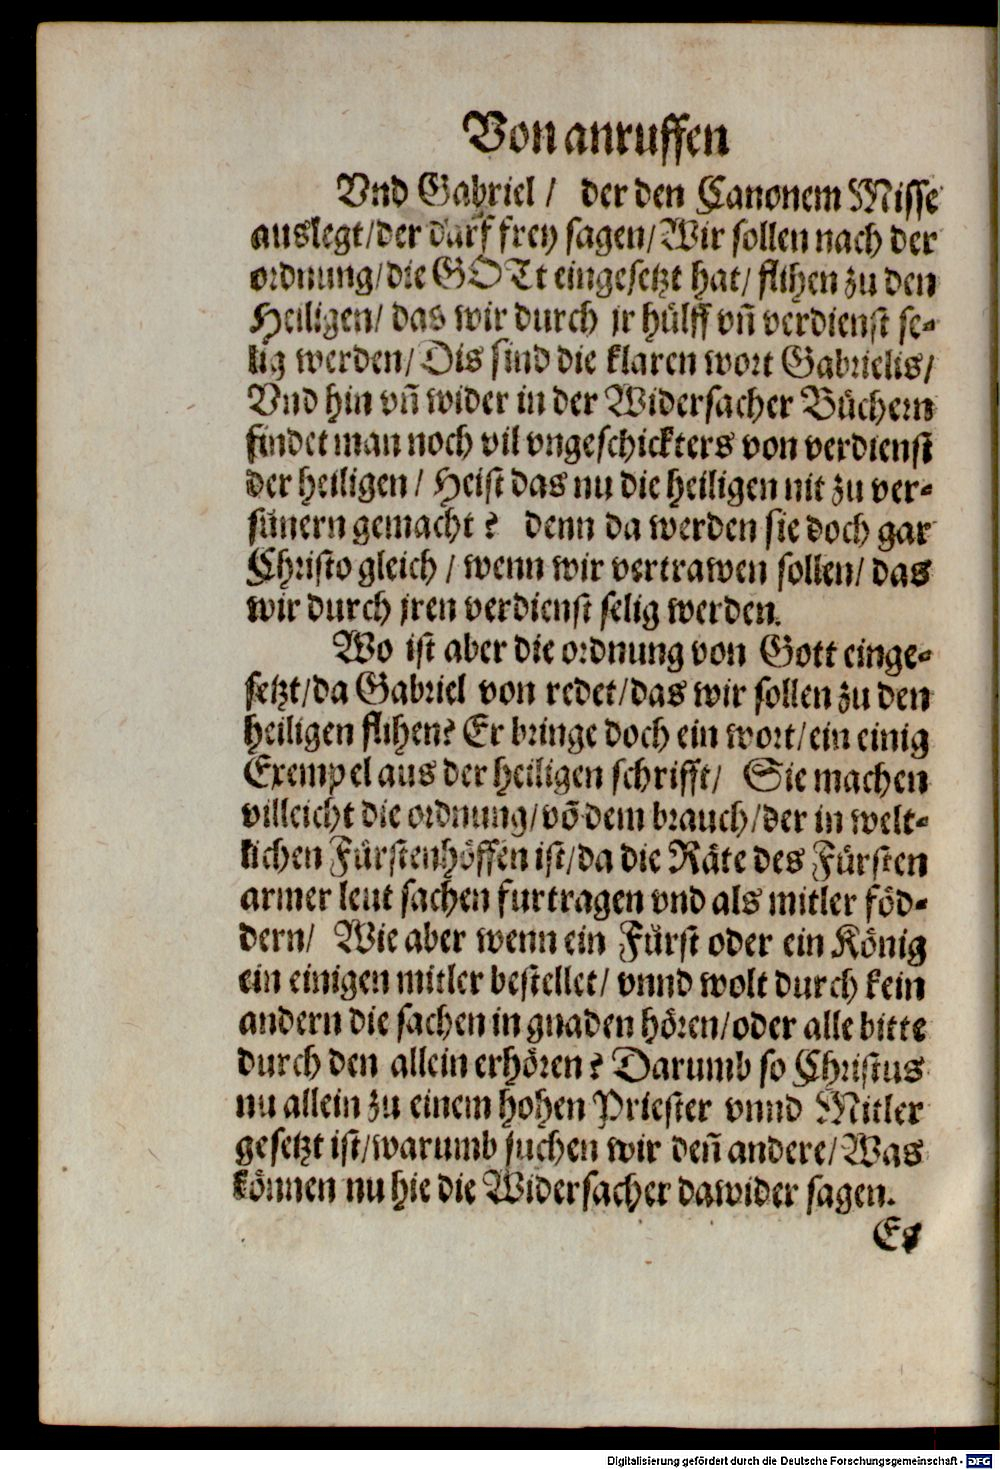 Von anruffen
Vnd Gabriel / der den Canonem Misse
auslegt/der darf frey sagen/Wir sollen nach der
ordnung/die GOTt eingesetzt hat/ flihen zu den
Heiligen/ das wir durch jr hülff vñ verdienst se-
lig werden/Dis sind die klaren wort Gabrielis/
Vnd hin vñ wider in der Widersacher Büchern
findet man noch vil vngeschickters von verdienst
der heiligen / Heist das nu die heiligen nit zu ver-
sünern gemacht? denn da werden sie doch gar
Christo gleich / wenn wir vertrawen sollen/ das
wir durch jren verdienst selig werden.
Wo ist aber die ordnung von Gott einge-
setzt/da Gabriel von redet/das wir sollen zu den
heiligen flihen? Er bringe doch ein wort/ein einig
Exempel aus der heiligen schrifft/ Sie machen
villeicht die ordnung/võ dem brauch/der in welt-
lichen Fürstenhöffen ist/da die Räte des Fürsten
armer leut sachen furtragen vnd als mitler föd-
dern/ Wie aber wenn ein Fürst oder ein König
ein einigen mitler bestellet/ vnnd wolt durch kein
andern die sachen in gnaden hören/oder alle bitte
durch den allein erhören? Darumb so Christus
nu allein zu einem hohen Priester vnnd Mitler
gesetzt ist/warumb suchen wir deñ andere/Was
können nu hie die Widersacher dawider sagen.
Es
Digitalisierung gefördert durch die Deutsche Forschungsgemeinschaft - DFG